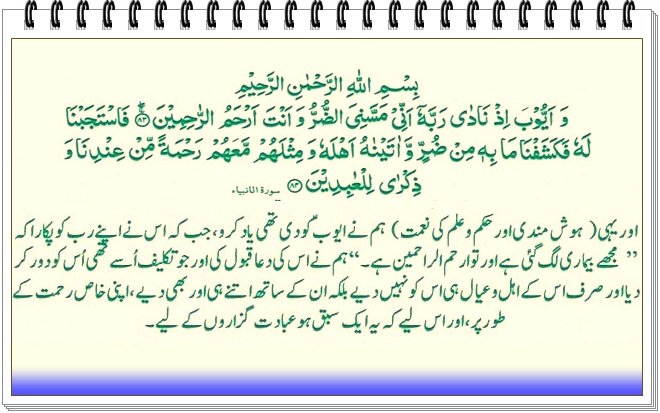 بِسْمِ اللهِ الرَّحْمٰنِ الرَّحِيْمِ
وَ اَيُّوْبَ اِذْ نَادٰى رَبَّهٗۤ اَنِّىْ مَسَّنِىَ الضُّرُّ وَ اَنْتَ اَرْحَمُ الرّٰحِمِيْنَ ۚۖ‏﴿۸۳﴾ فَاسْتَجَبْنَا
لَهٗ فَكَشَفْنَا مَا بِهٖ مِنْ ضُرٍّ وَّ اٰتَيْنٰهُ اَهْلَهٗ وَ مِثْلَهُمْ مَّعَهُمْ رَحْمَةً مِّنْ عِنْدِنَا وَ
ذِكْرٰى لِلْعٰبِدِيْنَ ﴿۸۴﴾ سورۃ الانبیاء
اور یہی (ہوش مندی اور حکم و علم کی نعمت) ہم نے ایوبؑ کو دی تھی یاد کرو، جب کہ اس نے اپنے رب کو پکارا کہ
”مجھے بیماری لگ گئی ہے اور تو ارحم الراحمین ہے۔“ ہم نے اس کی دعا قبول کی اور جو تکلیف اُسے تھی اُس کو دور کر
دیا اور صرف اس کے اہل و عیال ہی اس کو نہیں دیے بلکہ ان کے ساتھ اتنے ہی اور بھی دیے، اپنی خاص رحمت کے
طور پر، اور اس لیے کہ یہ ایک سبق ہو عبادت گزاروں کے لیے۔